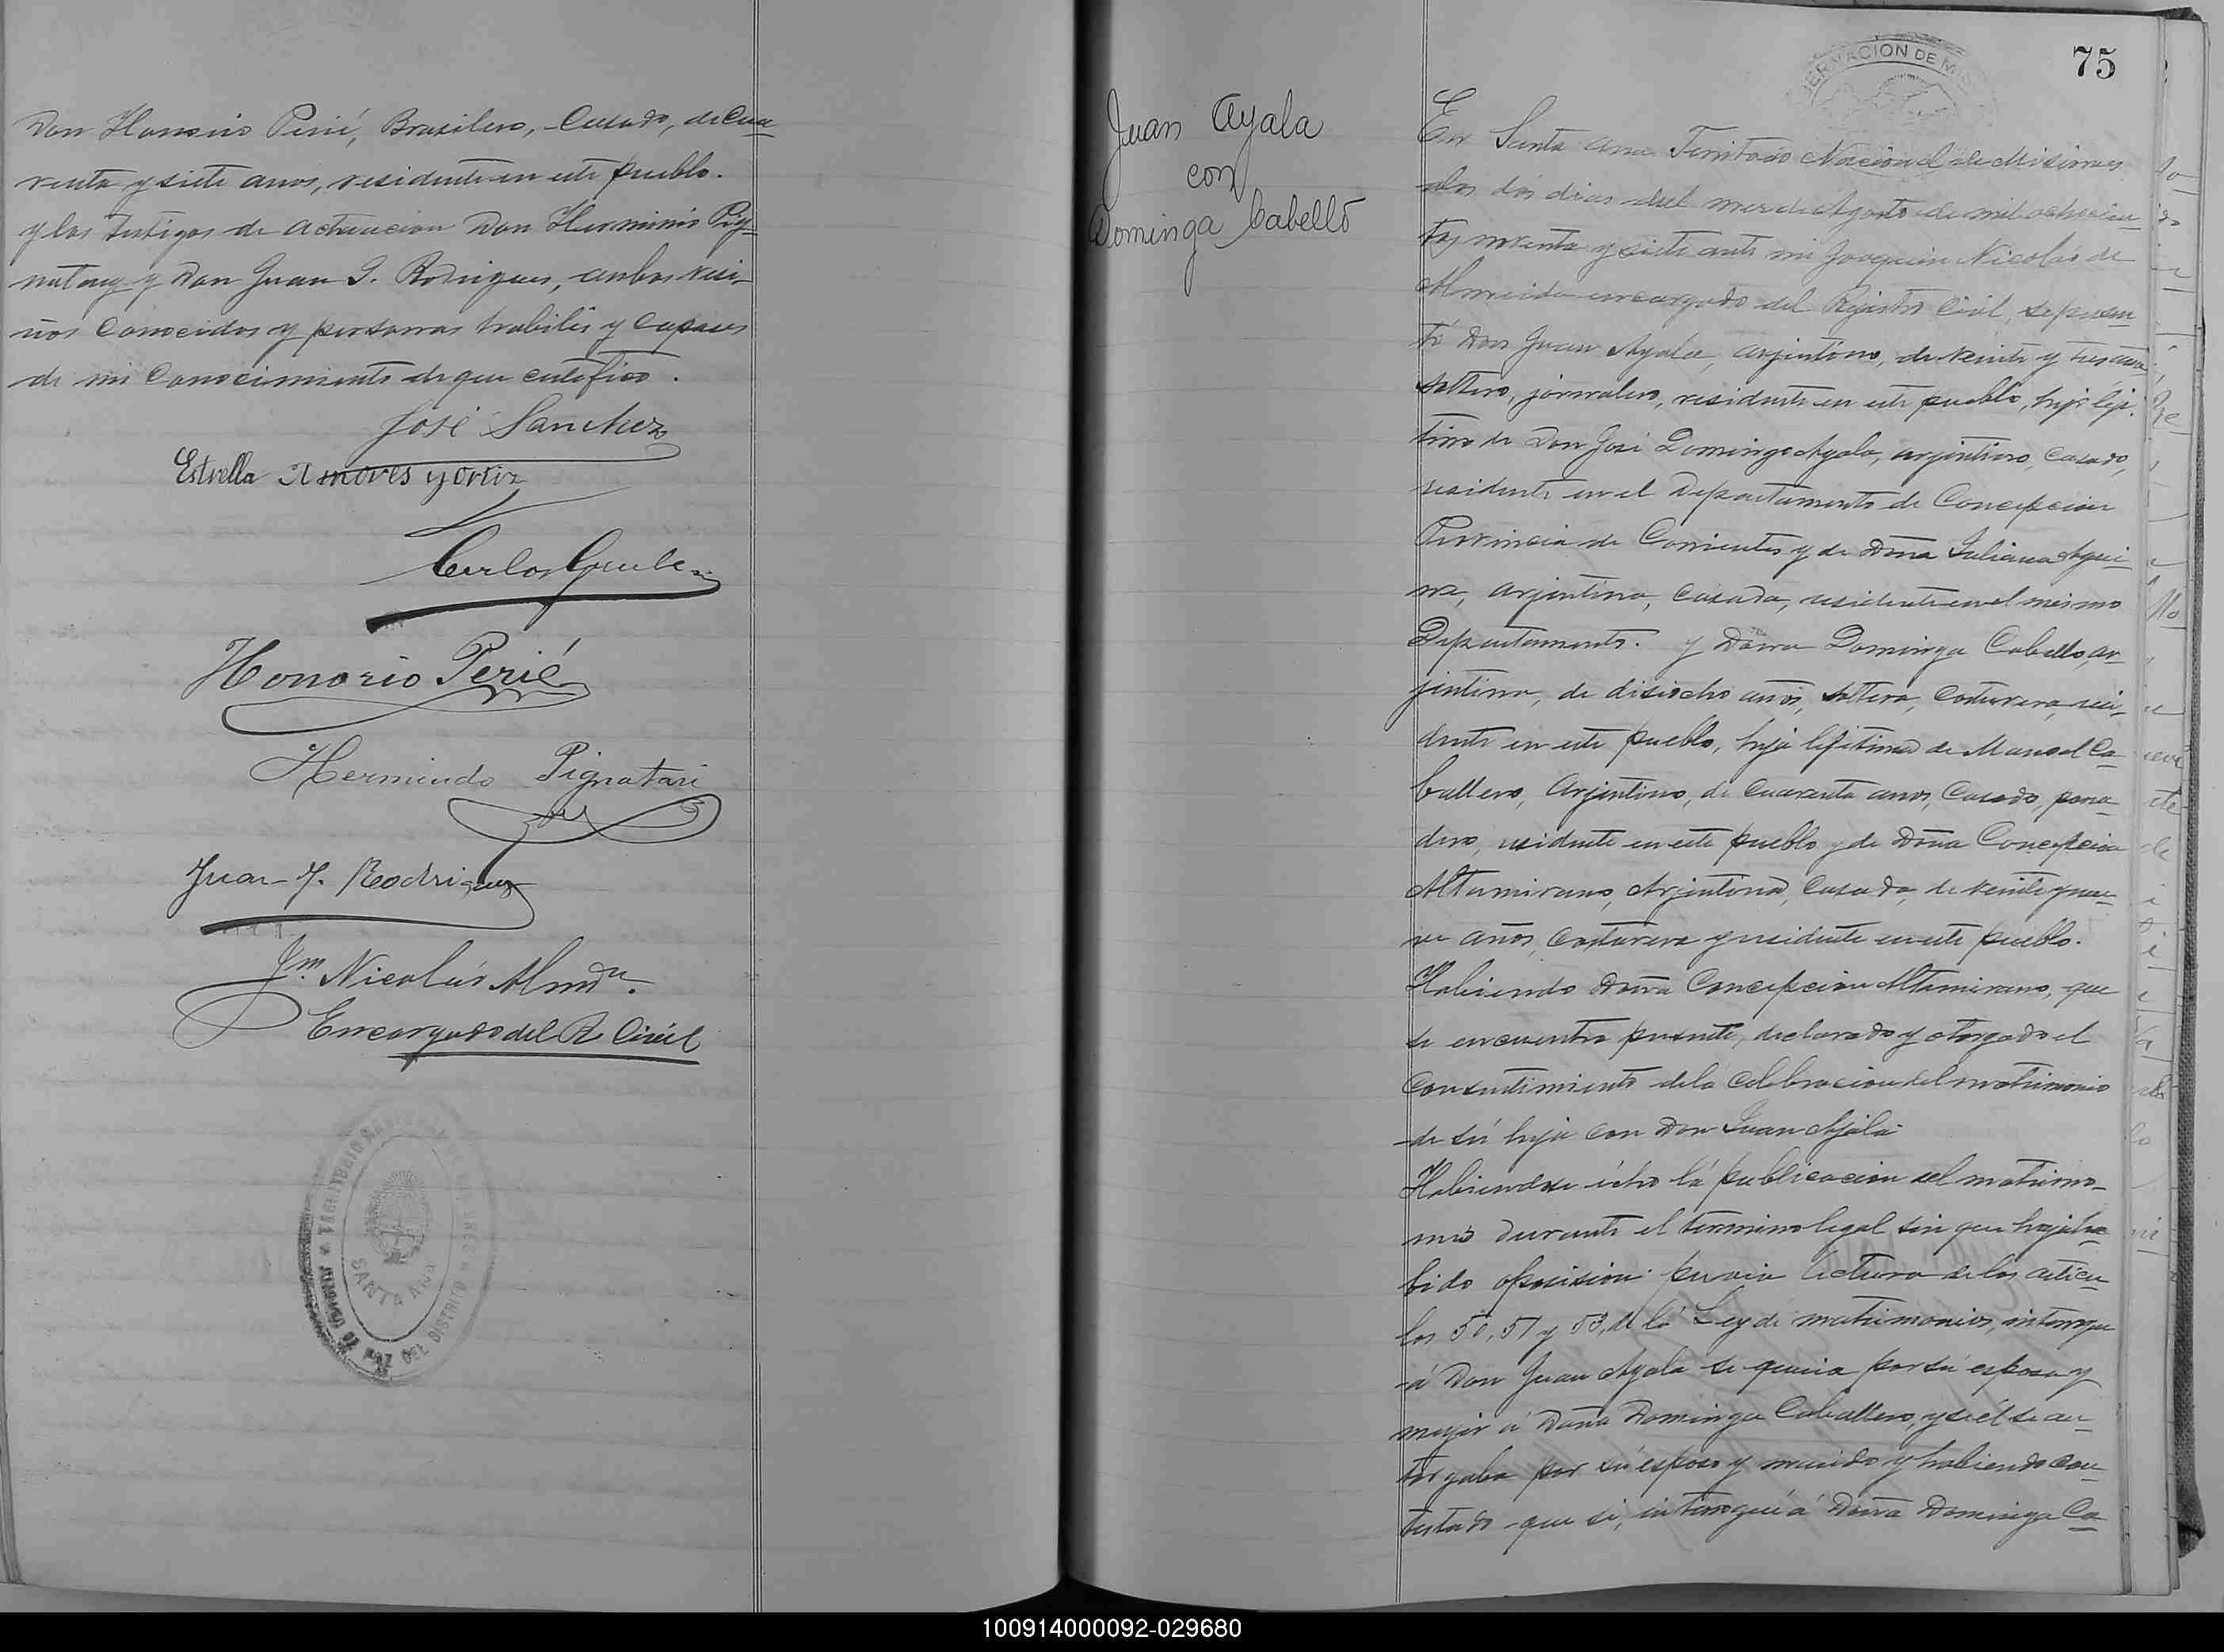 Don Honorio Perié, Brasilero, Casado, de Cua
renta y siete anos, residente en este pueblo.
y los testigos de actuacion Don Herminio Pig-
natary y Don Juan J. Rodrigues, ambos vesi-
nos Conocidos y personas habiles y Capases
de mi Conocimiento de que certifico.
José Sanchez
Estrella Amores y Ortiz
Carlos
Honorio Perié
Hermindo Pignatari
Juan J. Rodriguez
Jm. Nicolás Almda.
Encargado del R. Civil
SANTA ANA
DE PAZ DEL DISTRITO
75
GOBERNACION DE MIS
Juan Ayala
con
Dominga Cabello
En Santa Ana Territorio Nacional de Misiones
a los dos dias del mes de Agosto de mil ochocien
tos noventa y siete ante mi Joaquin Nicolás de
Almeida encargado del Rejistro Civil, se presen
tó Don Juan Ayala, arjentino, de veinte y tres anos
soltero, jornalero, residente en este pueblo, hijo leji-
timo de Don José Domingo Ayala, arjentino, Casado,
residente en el Departamento de Concepcion
Provincia de Corrientes y de Dona Juliana Agui
rre, arjentina, Casada, residente en el mismo
Departamento. y Dona Dominga Cabello, ar
jentina, de disiocho años, soltera, Costurera, resi-
dente en este pueblo, hija lejitima de Manuel Ca
ballero, Arjentino, de Cuarenta anos, Casado, pana
dero, residente en este pueblo y de Doña Concepcion
Altamirano, Arjentina, Casada, de veinte y nue-
ve años, Costurera y residente en este pueblo.
Habiendo Doña Concepcion Altamirano, que
se encuentra presente, declarado y otorgado el
Consentimiento de la Celebracion del matrimonio
de sú hija con Don Juan Ajala
Habiendose echo lá publicacion del matrimo-
nio durante el termino legal sin que haja ha
bido oposision previa lectura de los articu-
los 50, 51 y 53, de lá Ley de matrimonios, interrogue
á Don Juan Ayala se queria por sú esposa y
mujer á Doña Dominga Caballero, y se él se au-
torgaba por sú esposo y marido y habiendo Con-
testado que si, interrogué á Doña Dominga Ca
100914000092-029680